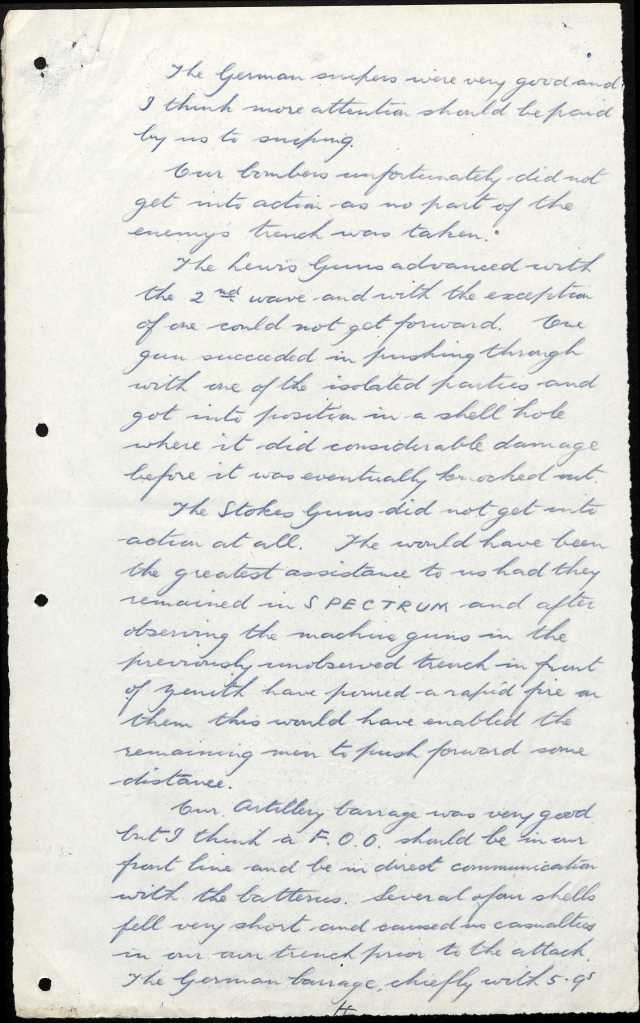 The German snipers were very good and
I think more attention should be paid
by us to sniping.
Our bombers unfortunately did not
get into action as no part of the
enemy's trench was taken.
The Lewis Guns advanced with
the 2nd wave and with the exception
of one could not get forward. One
gun succeeded in pushing through
with one of the isolated parties and
got into position in a shell hole
where it did considerable damage
before it was eventually knocked out.
The Stokes Guns did not get into
action at all. The would have been
the greatest assistance to us had they
remained in SPECTRUM and after
observing the machine guns in the
previously unobserved trench in front
of Zenith have poured a rapid fire on
them this would have enabled the
remaining men to push forward some
distance.
Our Artillery barrage was very good
but I think a F.O.O. should be in our
front line and be in direct communication
with the batteries. Several of our shells
fell very short and caused us casualties
in our own trench prior to the attack.
The German barrage, chiefly with 5.9s
4